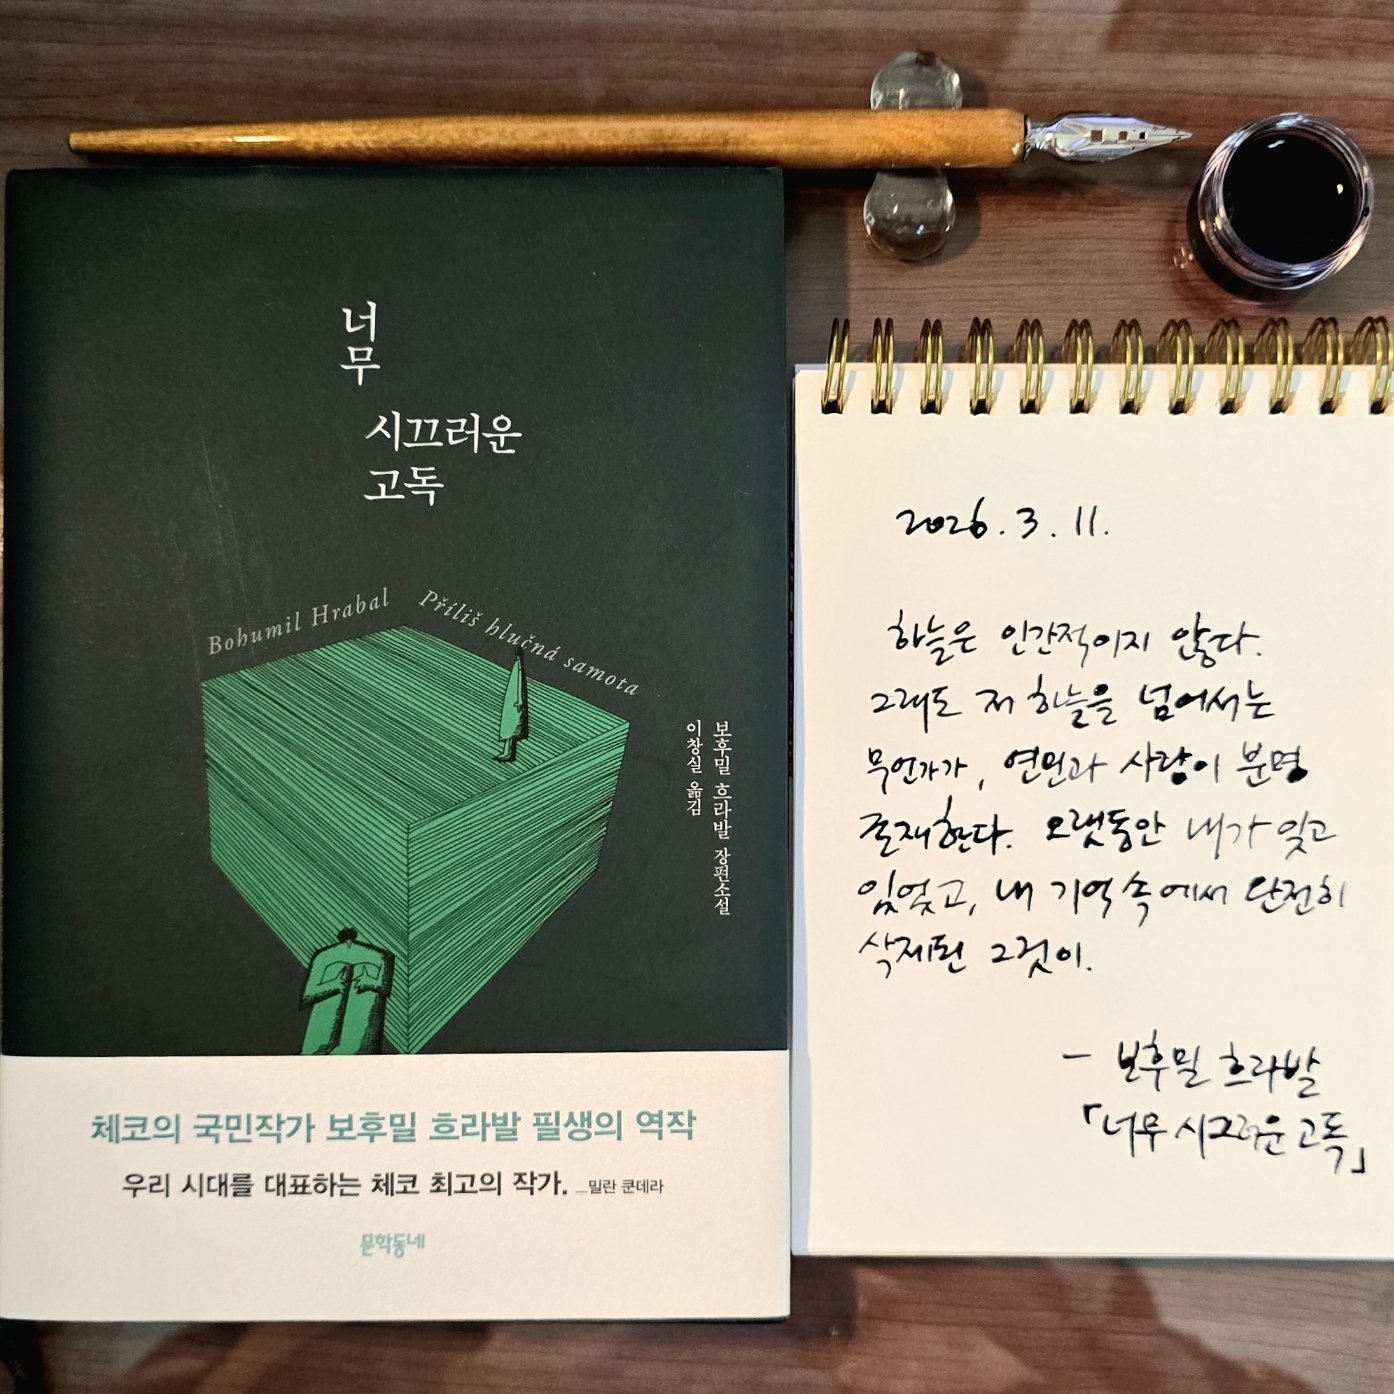 너
무
시끄러운
고독
Bohumil Hrabal Příliš hlučná samota
보후밀 흐라발 장편소설
이창실 옮김
체코의 국민작가 보후밀 흐라발 필생의 역작
우리 시대를 대표하는 체코 최고의 작가. _밀란 쿤데라
문학동네
2026. 3. 11.
하늘은 인간적이지 않다.
그래도 저 하늘을 넘어서는
무언가가, 연민과 사랑이 분명
존재한다. 오랫동안 내가 잊고
있었고, 내 기억 속에서 완전히
삭제된 그것이.
- 보후밀 흐라발
「너무 시끄러운 고독」